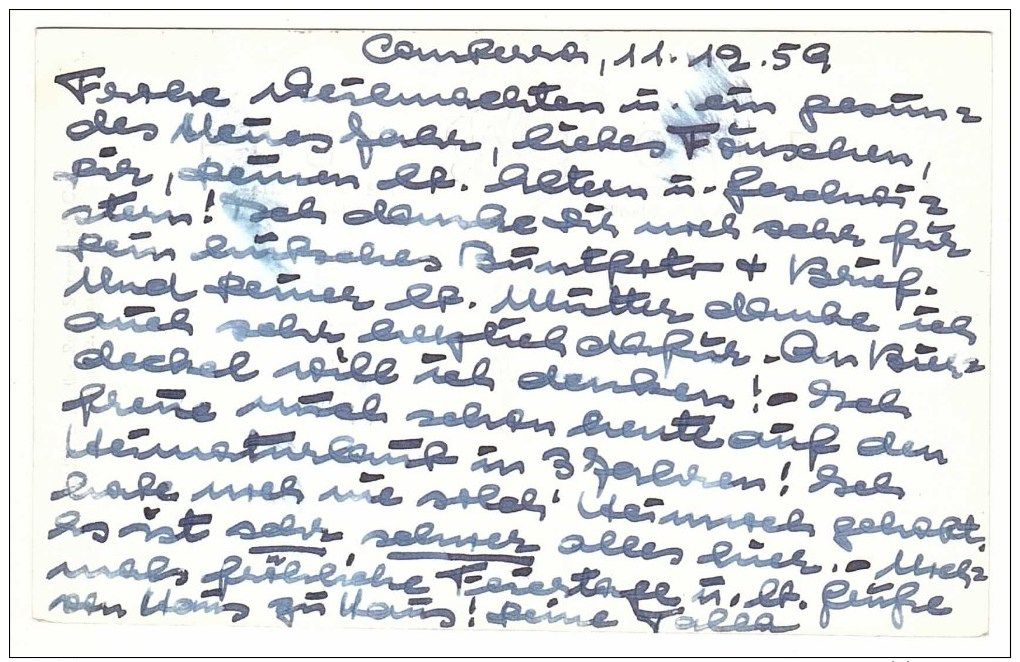 Canberra, 11.12.59
Frohe Weihnachten u. ein gesun=
des Neues Jahr, liebes Fränzchen,
Dir, Deinen lb. Eltern u. Geschwi=
stern! Ich danke Dir noch sehr für
Dein hübsches Buntfoto + Brief.
Und Deiner lb. Mutter danke ich
auch sehr herzlich dafür. An Bier=
deckel will ich denken! – Ich
freue mich schon heute auf den
Heimaturlaub in 3 Jahren! Ich
habe noch nie solch' Heimweh gehabt.
Es ist sehr, schwer alles hier. – Noch=
mals fröhliche Feiertage u. lb. Grüße
von Haus zu Haus! Deine